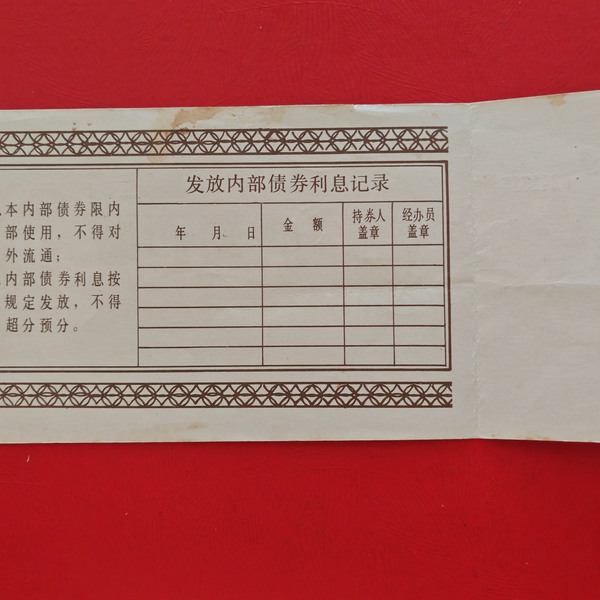 本内部债券限内
部使用，不得对
外流通；
内部债券利息按
规定发放，不得
超分预分。
发放内部债券利息记录
年 月 日 金 额 持券人盖章 经办员盖章